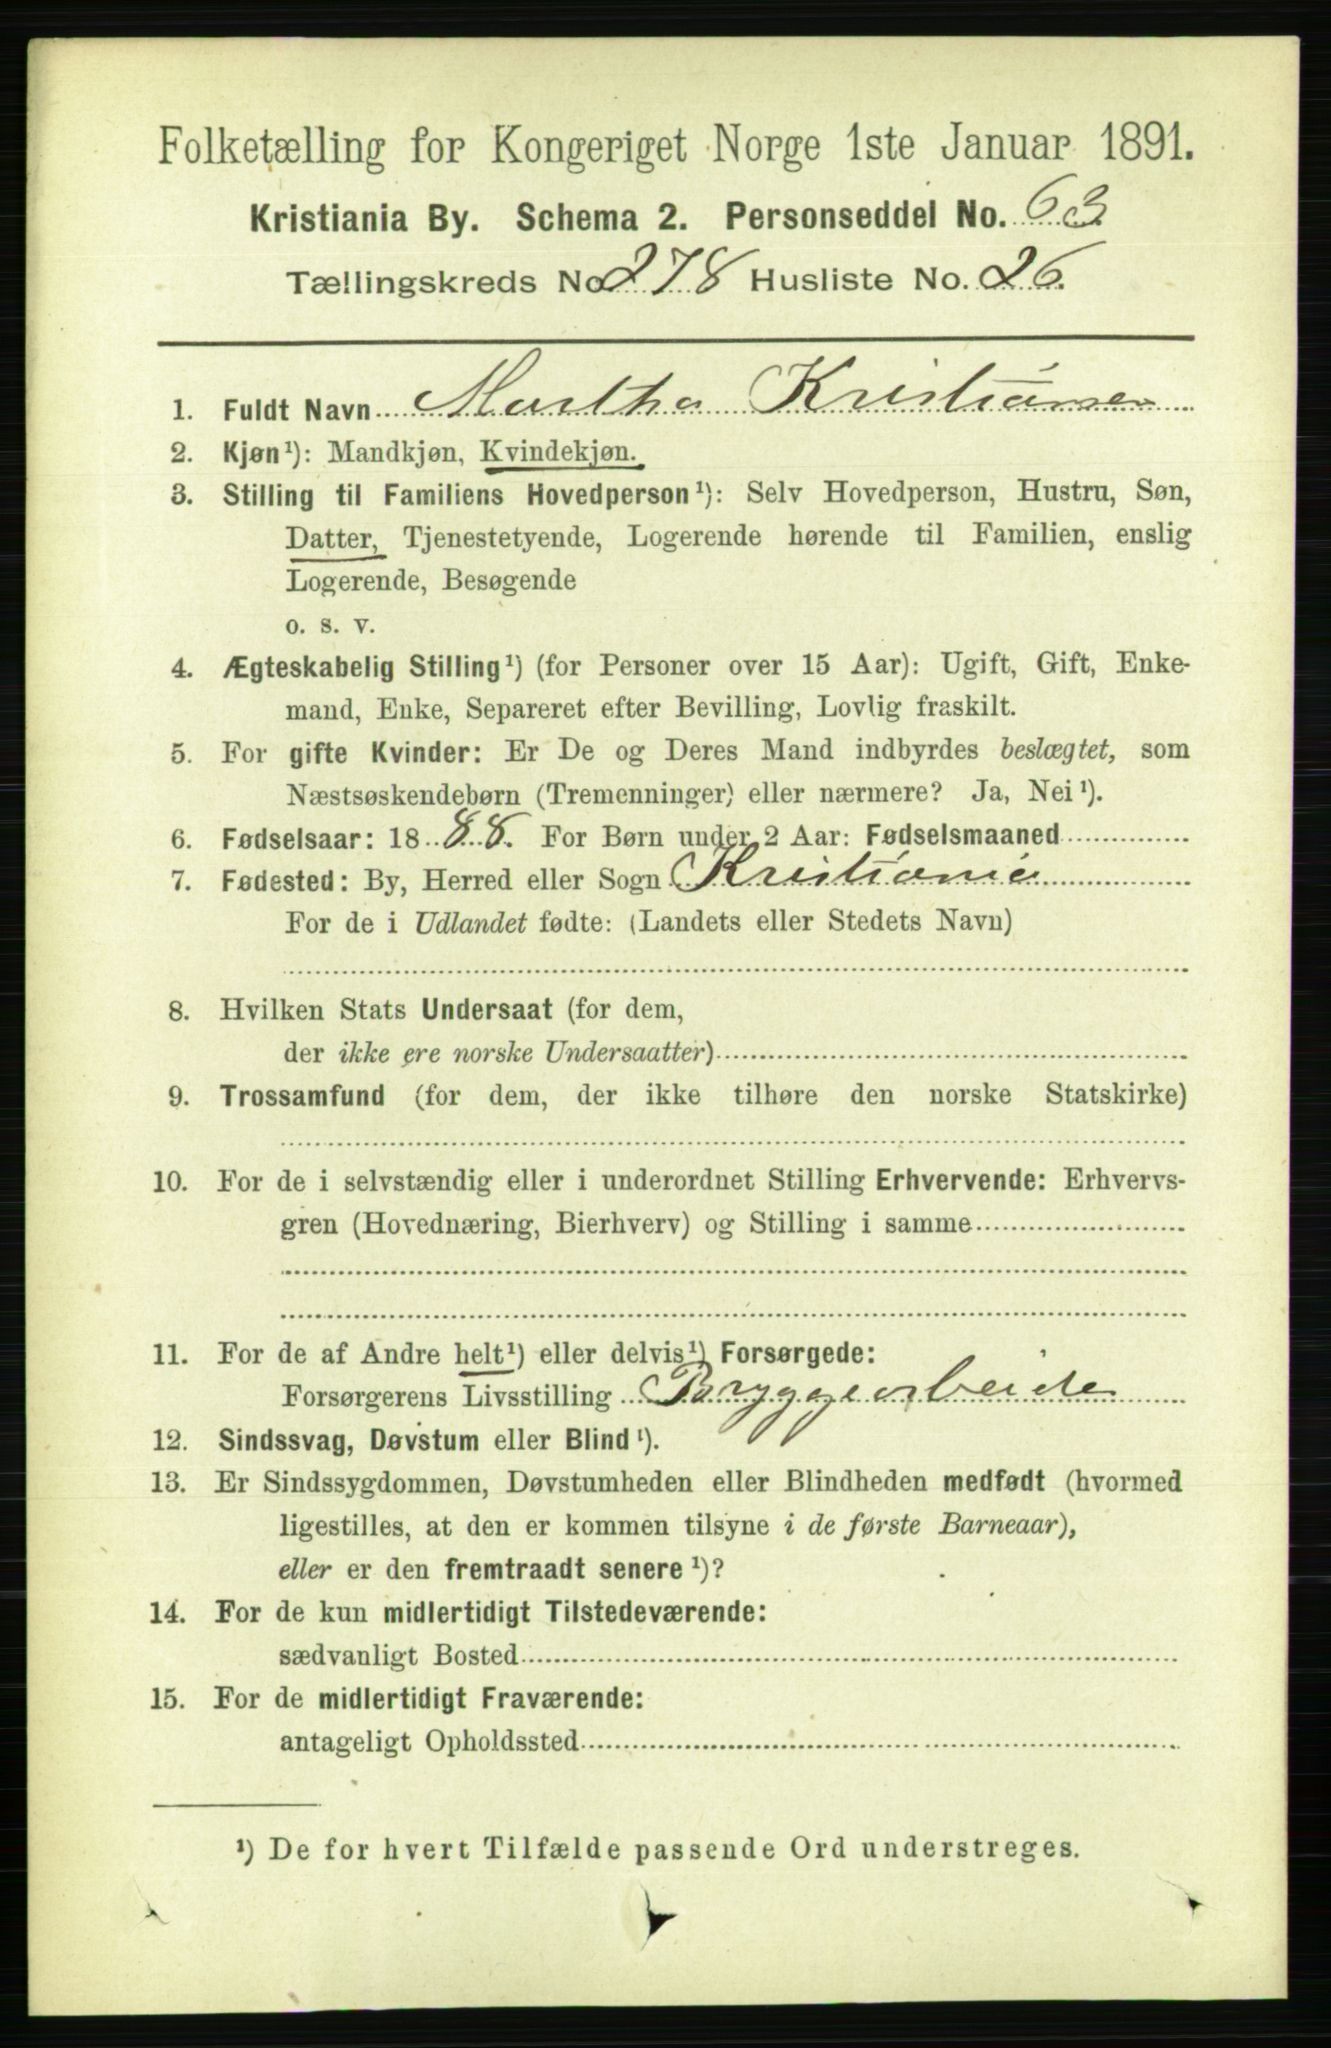 Folketælling for Kongeriget Norge 1ste Januar 1891.
Kristiania By. Schema 2. Personseddel No. 63.
Tællingskreds No 278 Husliste No. 26.
1. Fuldt Navn Martha Kristiansen
2. Kjøn¹): Mandkjøn, Kvindekjøn.
3. Stilling til Familiens Hovedperson¹): Selv Hovedperson, Hustru, Søn,
Datter, Tjenestetyende, Logerende hørende til Familien, enslig
Logerende, Besøgende
o. s. v.
4. Ægteskabelig Stilling¹) (for Personer over 15 Aar): Ugift, Gift, Enke-
mand, Enke, Separeret efter Bevilling, Lovlig fraskilt.
5. For gifte Kvinder: Er De og Deres Mand indbyrdes beslægtet, som
Næstsøskendebørn (Tremenninger) eller nærmere? Ja, Nei¹).
6. Fødselsaar: 1888. For Børn under 2 Aar: Fødselsmaaned
7. Fødested: By, Herred eller Sogn Kristiania
For de i Udlandet fødte: (Landets eller Stedets Navn)
8. Hvilken Stats Undersaat (for dem,
der ikke ere norske Undersaatter)
9. Trossamfund (for dem, der ikke tilhøre den norske Statskirke)
10. For de i selvstændig eller i underordnet Stilling Erhvervende: Erhvervs-
gren (Hovednæring, Bierhverv) og Stilling i samme
11. For de af Andre helt¹) eller delvis¹) Forsørgede:
Forsørgerens Livsstilling Bryggearbeide
12. Sindssvag, Døvstum eller Blind¹).
13. Er Sindssygdommen, Døvstumheden eller Blindheden medfødt (hvormed
ligestilles, at den er kommen tilsyne i de første Barneaar),
eller er den fremtraadt senere¹)?
14. For de kun midlertidigt Tilstedeværende:
sædvanligt Bosted
15. For de midlertidigt Fraværende:
antageligt Opholdssted
¹) De for hvert Tilfælde passende Ord understreges.